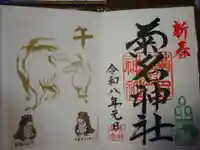 新春
菊名神社
令和八年元日
午